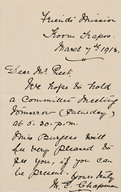 Friends' Mission
March 7th, 1913.
Dear Mr. Peet.
We hope to hold
a Committee Meeting
tomorrow (Saturday)
at 6.30 p.m.
Miss Burgess will
be very pleased to
see you, if you can
be present.
Yours truly
M. E. Chapman